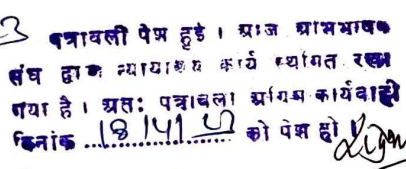 पत्रावली पेश हुई । आज अभिभाषक
संघ द्वारा न्यायालय कार्य स्थगित रखा
गया है । अतः पत्रावली अग्रिम कार्यवाही
दिनांक 18/4/ को पेश हो ।